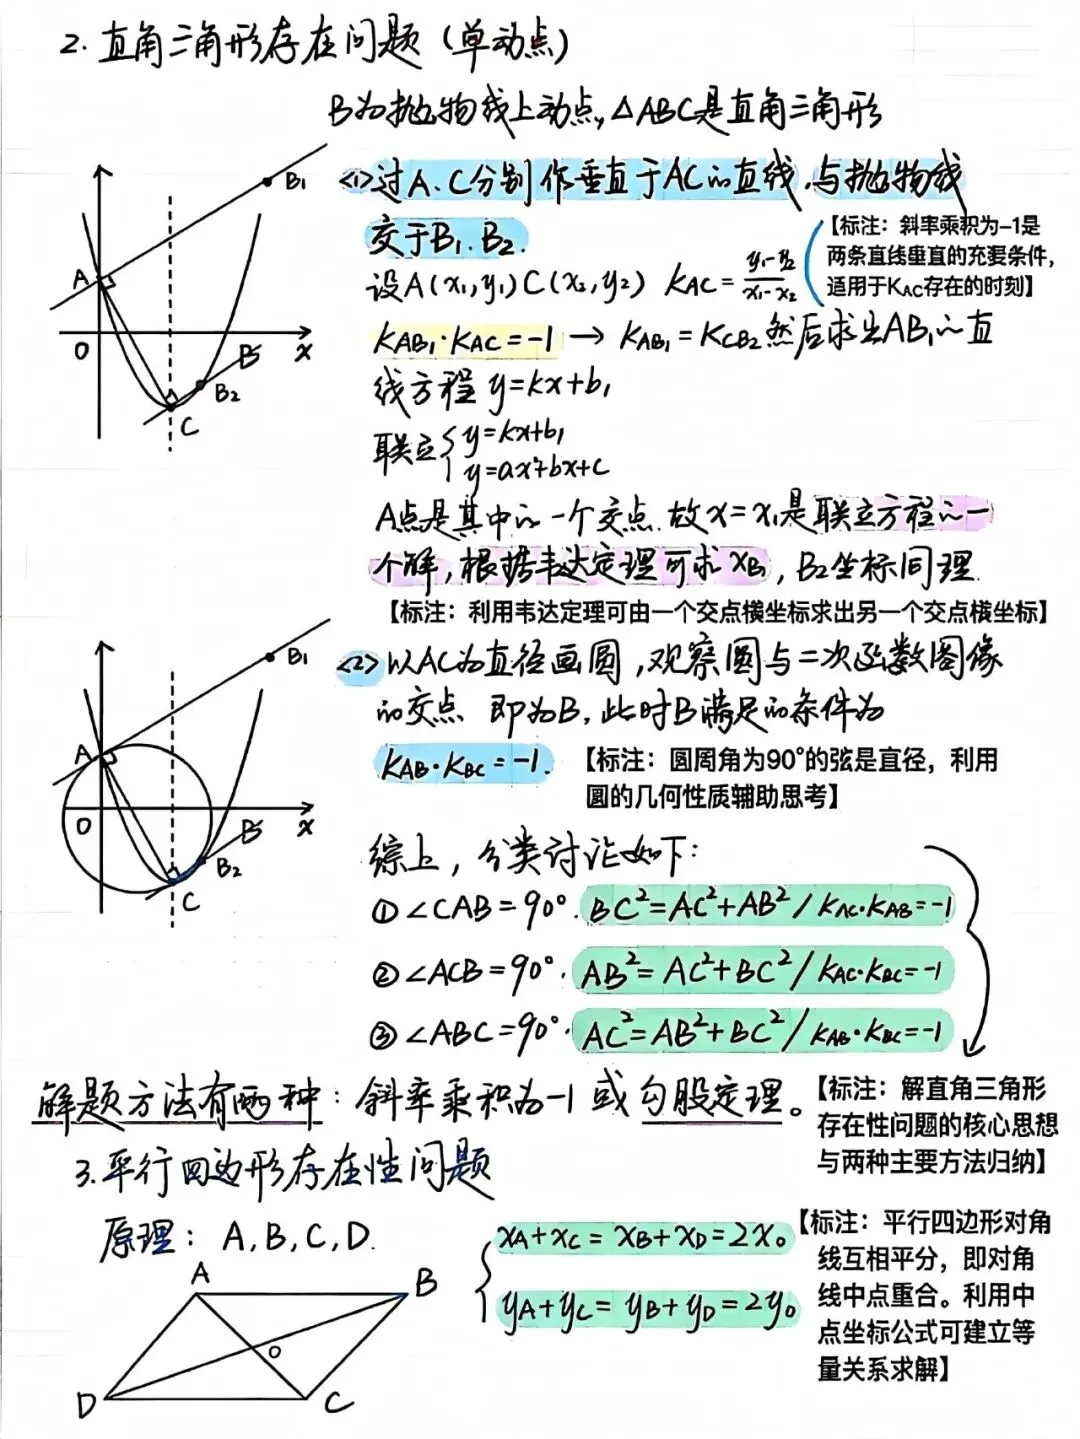 2. 直角三角形存在问题 (单动点)
B为抛物线上动点, △ABC是直角三角形
<1>过A.C分别作垂直于AC的直线,与抛物线
交于B₁.B₂.
【标注：斜率乘积为-1是
两条直线垂直的充要条件,
适用于KAC存在的时刻】
设A(x₁,y₁)C(x₂,y₂) KAC=(y₁-y₂)/(x₁-x₂)
KAB₁·KAC=-1 → KAB₁=KCB₂ 然后求出AB₁的直
线方程 y=kx+b₁
联立{y=kx+b₁
y=ax²+bx+c
A点是其中的一个交点.故x=x₁是联立方程的一
个解,根据韦达定理可求xB₁,B₂坐标同理.
【标注：利用韦达定理可由一个交点横坐标求出另一个交点横坐标】
A
B₁
O
B
x
B₂
C
<2>以AC为直径画圆,观察圆与二次函数图像
的交点 即为B,此时B满足的条件为
KAB·KBC=-1.
【标注：圆周角为90°的弦是直径，利用
圆的几何性质辅助思考】
A
B₁
O
B
x
B₂
C
综上,分类讨论如下:
①∠CAB=90°. BC²=AC²+AB²/KAC·KAB=-1
②∠ACB=90°. AB²=AC²+BC²/KAC·KBC=-1
③∠ABC=90°. AC²=AB²+BC²/KAB·KBC=-1
解题方法有两种: 斜率乘积为-1 或勾股定理。
【标注：解直角三角形
存在性问题的核心思想
与两种主要方法归纳】
3.平行四边形存在性问题
原理: A,B,C,D.
{xA+xC=xB+xD=2x₀
yA+yC=yB+yD=2y₀
【标注：平行四边形对角
线互相平分，即对角
线中点重合。利用中
点坐标公式可建立等
量关系求解】
A
B
O
D
C